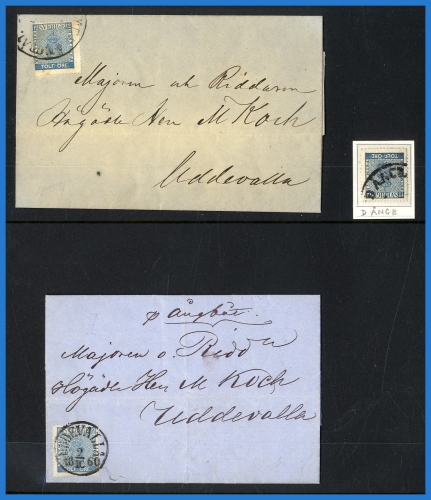 SVERIGE
TOLF ÖRE
Majoren och Riddaren
Högädle Herr M Koch
Uddevalla
TOLF ÖRE
D ÅNGB
pr Ångbåt.
Majoren o. Ridd
Högädle Herr M Koch
Uddevalla
UDDEVALLA
2
1860
TOLF ÖRE